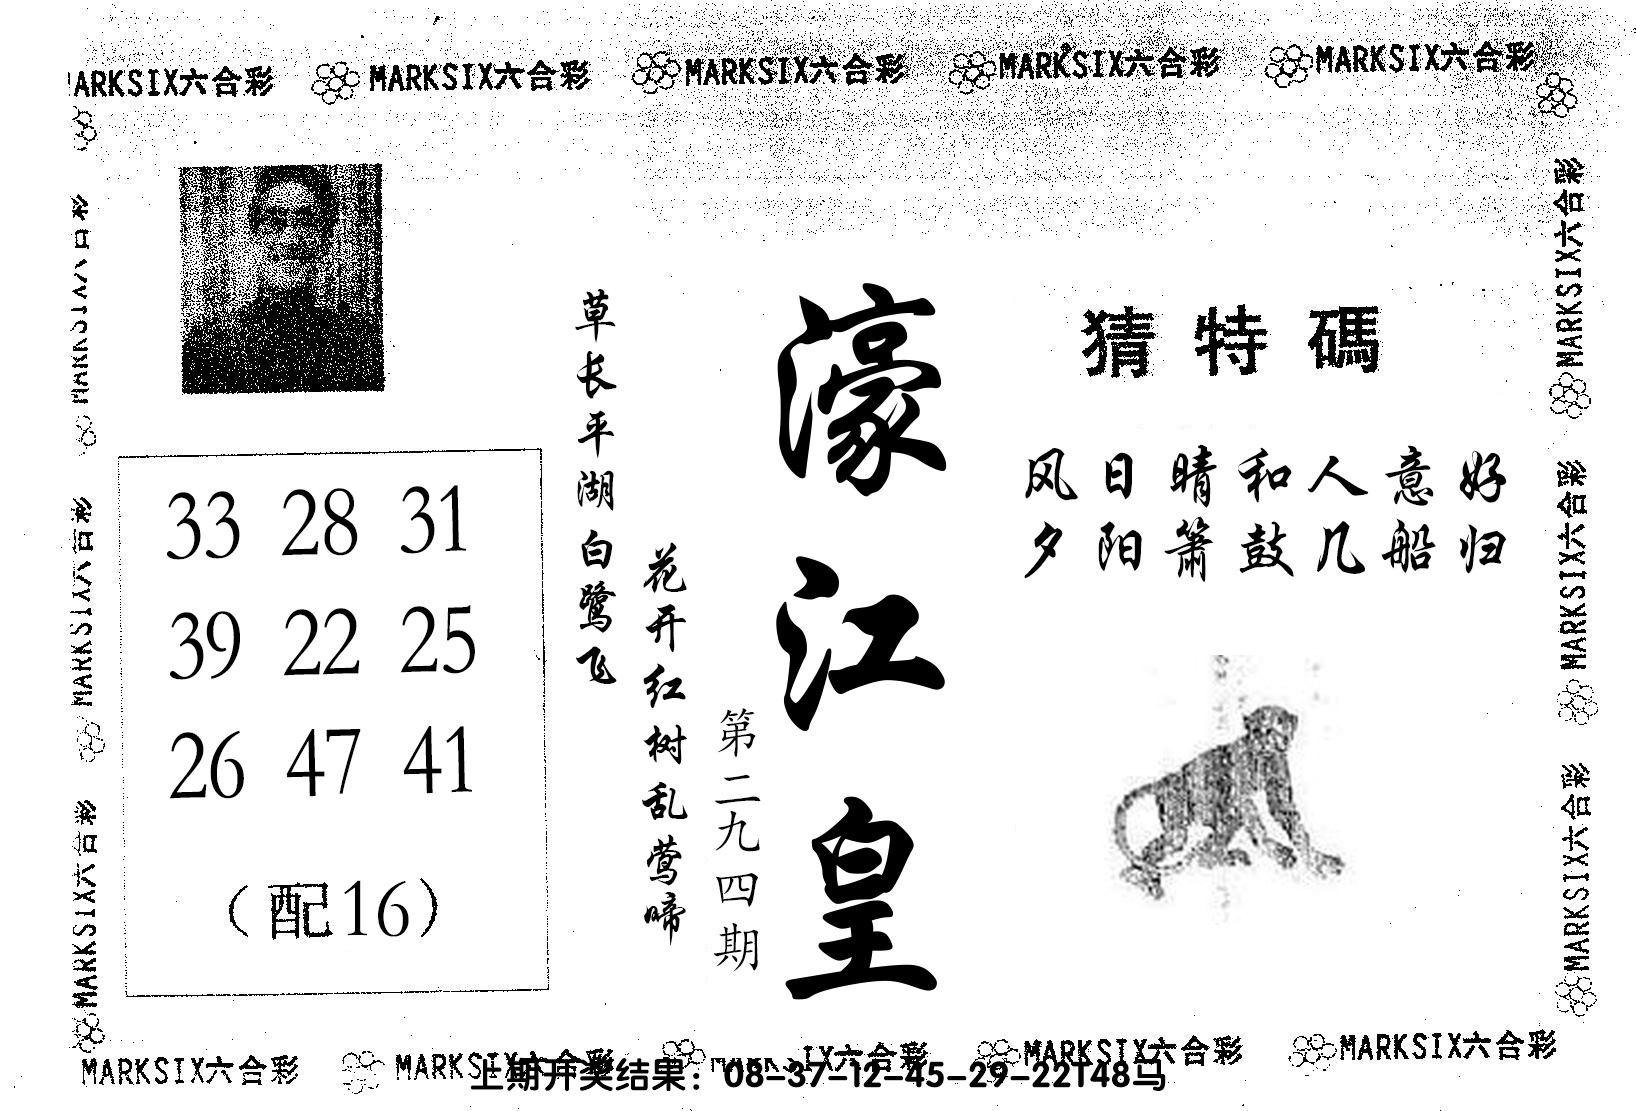 MARKSIX六合彩 MARKSIX六合彩 MARKSIX六合彩 MARKSIX六合彩 MARKSIX六合彩
猜特碼
风日晴和人意好
夕阳箫鼓几船归
濠江皇
第二九四期
花开红树乱莺啼
草长平湖白鹭飞
33 28 31
39 22 25
26 47 41
（配16）
MARKSIX六合彩
MARKSIX六合彩
MARKSIX六合彩
MARKSIX六合彩
MARKSIX六合彩
MARKSIX六合彩
MARKSIX六合彩 MARKSIX六合彩 六合彩 MARKSIX六合彩 MARKSIX六合彩
上期开奖结果：08-37-12-45-29-22T48马